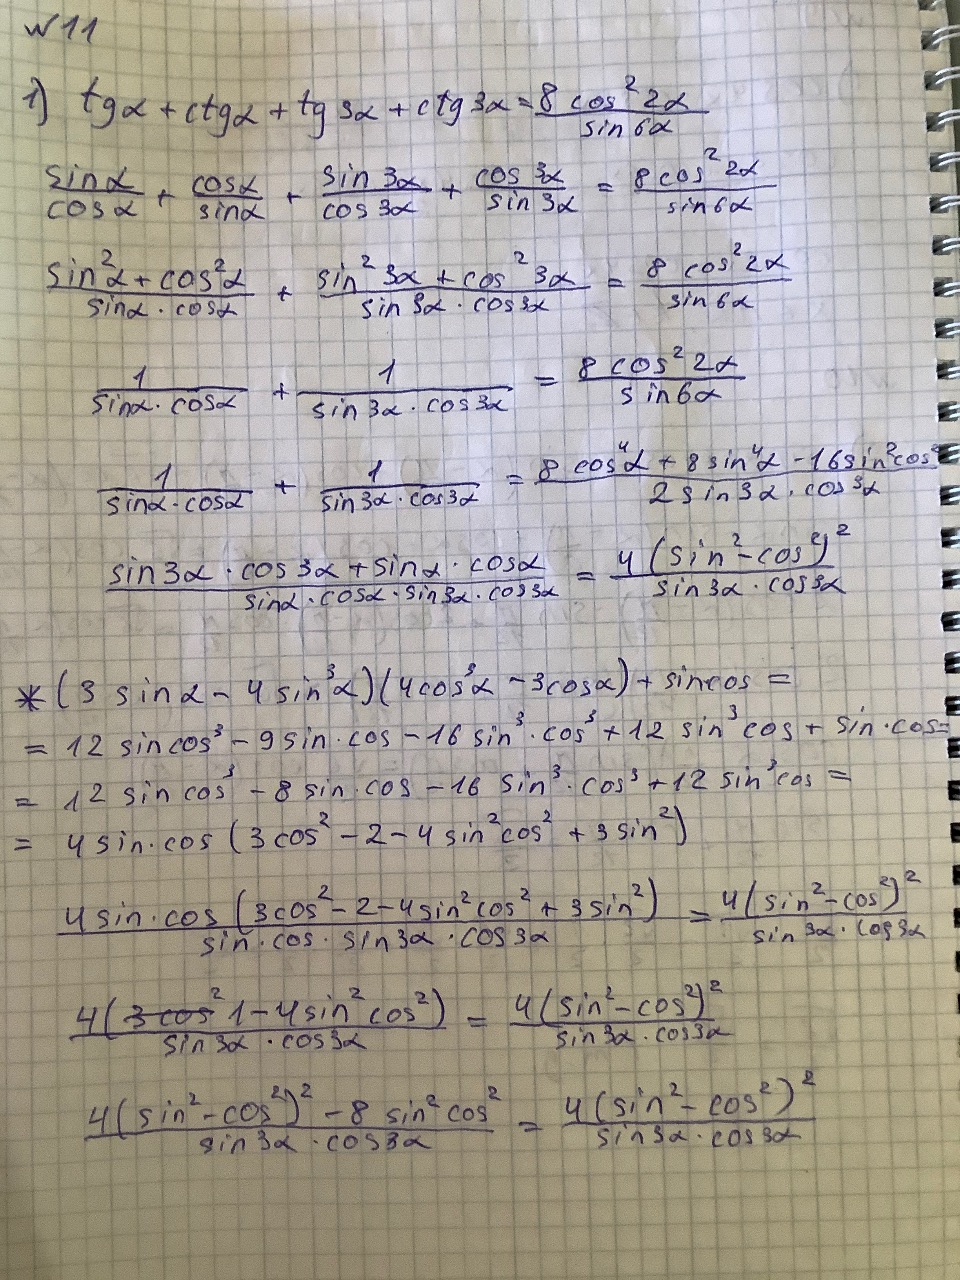 №11
1) tgα + ctgα + tg3α + ctg3α = 8 cos²2α / sin6α
sinα / cosα + cosα / sinα + sin3α / cos3α + cos3α / sin3α = 8 cos²2α / sin6α
sin²α + cos²α / sinα · cosα + sin²3α + cos²3α / sin3α · cos3α = 8 cos²2α / sin6α
1 / sinα · cosα + 1 / sin3α · cos3α = 8 cos²2α / sin6α
1 / sinα · cosα + 1 / sin3α · cos3α = 8 cos⁴α + 8 sin⁴α - 16 sin²cos² / 2 sin3α · cos3α
sin3α · cos3α + sinα · cosα / sinα · cosα · sin3α · cos3α = 4 (sin² - cos²)² / sin3α · cos3α
* (3 sinα - 4 sin³α)(4cos³α - 3cosα) + sincos =
= 12 sincos³ - 9 sin·cos - 16 sin³·cos³ + 12 sin³cos + sin·cos =
= 12 sin cos³ - 8 sin·cos - 16 sin³·cos³ + 12 sin³cos =
= 4 sin·cos (3 cos² - 2 - 4 sin²cos² + 3 sin²)
4 sin·cos (3cos² - 2 - 4 sin²cos² + 3 sin²) / sin·cos·sin3α·cos3α = 4 (sin² - cos²)² / sin3α·cos3α
4(1 - 4 sin²cos²) / sin3α·cos3α = 4(sin² - cos²)² / sin3α·cos3α
4(sin² - cos²)² - 8 sin²cos² / sin3α·cos3α = 4 (sin² - cos²)² / sin3α·cos3α